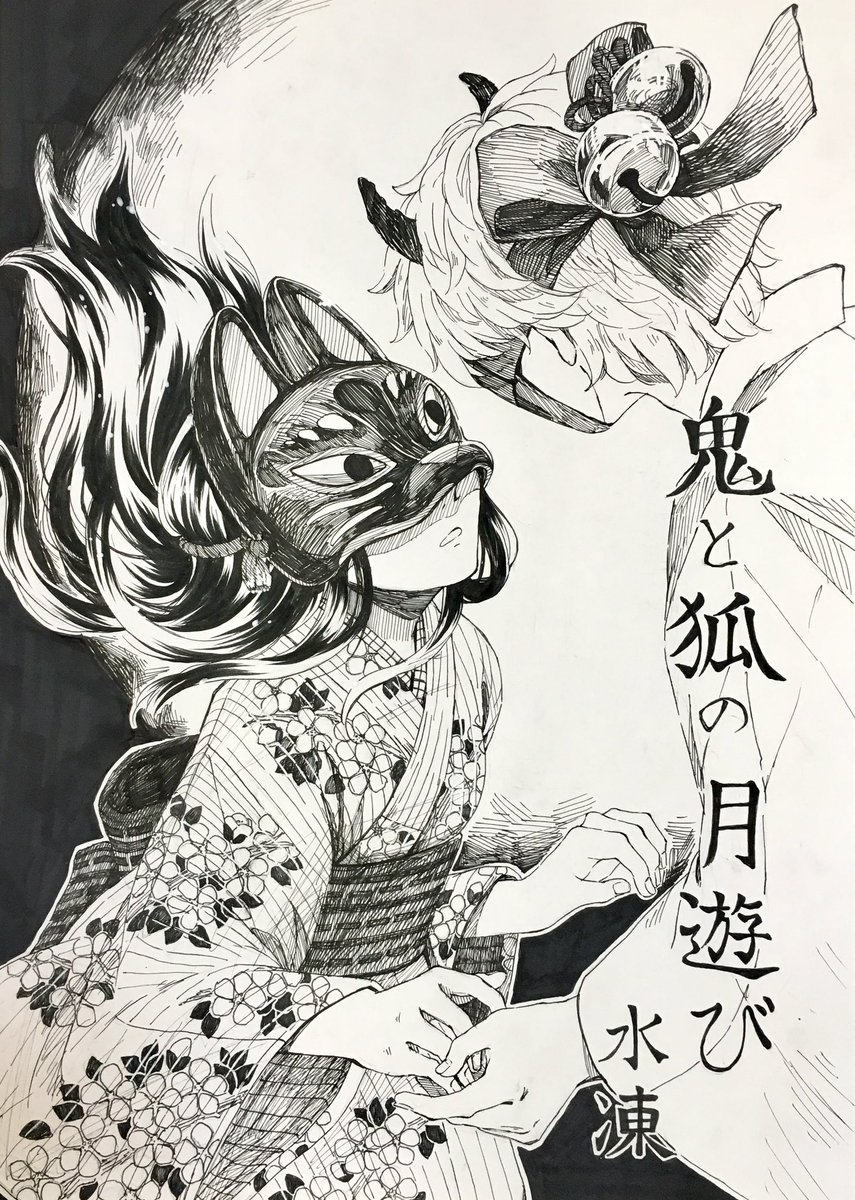 鬼と狐の月遊び
水凍